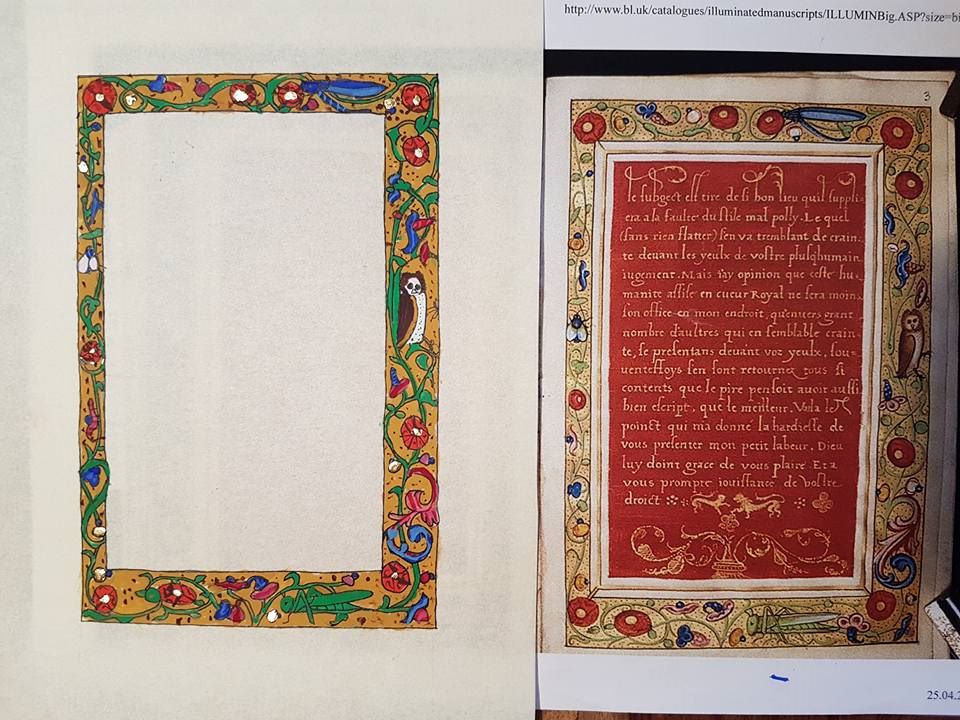 http://www.bl.uk/catalogues/illuminatedmanuscripts/ILLUMINBig.ASP?size=bi
3
le subgect est tire de si bon lieu quil suppli
era a la faulte du stile mal polly. Le quel
(sans rien flatter) s'en va tremblant de crain.
te deuant les yeulx de vostre plusqhumain
iugement. Mais i'ay opinion que ceste hu-
manite assise en cueur Royal ne fera moins
son office en mon endroit, qu'enuers grant
nombre d'aultres qui en semblable crain-
te, se presentans deuant voz yeulx, sou-
uenteffoys s'en sont retournez tous si
contents que le pire pensoit auoir aussi
bien escript, que le meilleur. Voila le
poinct qui m'a donné la hardiesse de
vous presenter mon petit labeur. Dieu
luy doint grace de vous plaire Et a
vous prompte iouissance de vostre
droict
25.04.2